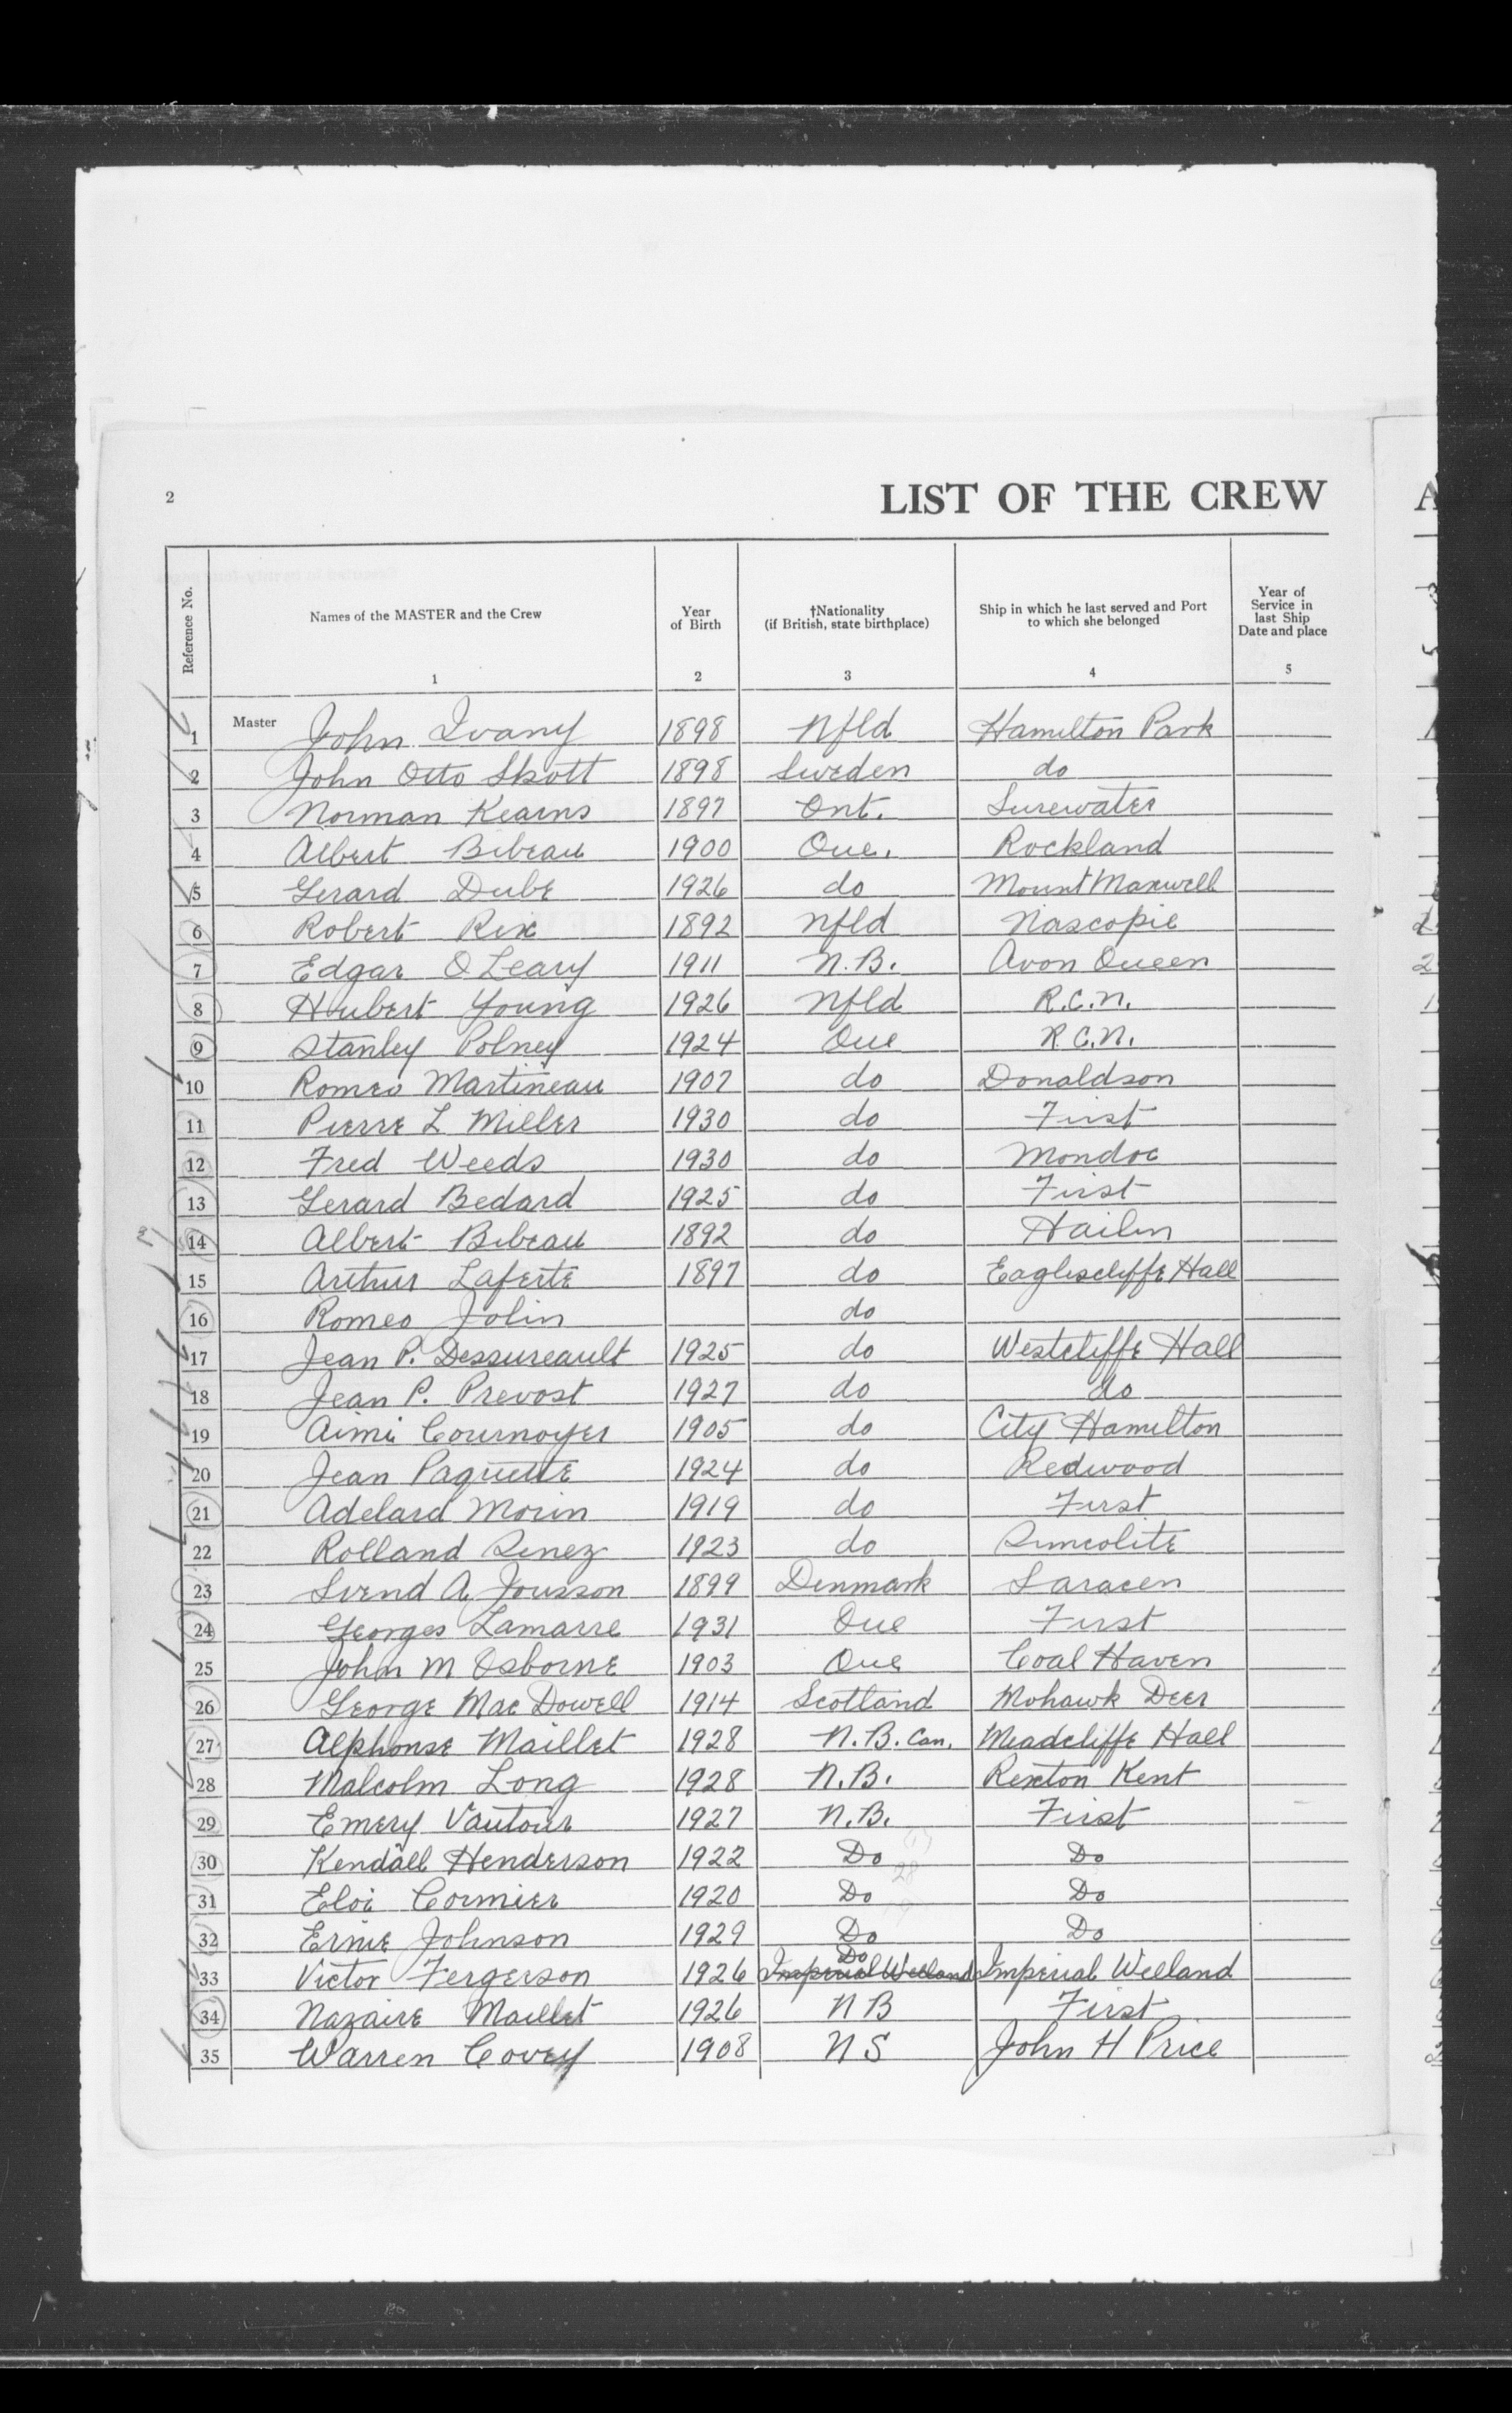 2
LIST OF THE CREW
Reference No.
Names of the MASTER and the Crew
Year of Birth
†Nationality (if British, state birthplace)
Ship in which he last served and Port to which she belonged
Year of Service in last Ship Date and place
1 2 3 4 5
1 Master John Ivany 1898 Nfld Hamilton Park
2 John Otto Skott 1898 Sweden do
3 Norman Kearns 1897 Ont. Surewater
4 Albert Bibeau 1900 Que. Rockland
5 Gerard Dube 1926 do Mount Maxwell
6 Robert Rex 1892 Nfld Nascopie
7 Edgar O Leary 1911 N.B. Avon Queen
8 Hubert Young 1926 Nfld R.C.N.
9 Stanley Polney 1924 Que R.C.N.
10 Romeo Martineau 1907 do Donaldson
11 Pierre L Miller 1930 do First
12 Fred Weeds 1930 do Mondoc
13 Gerard Bedard 1925 do First
14 Albert Bibeau 1892 do Hailin
15 Arthur Laferte 1897 do Eagliscliffe Hall
16 Romeo Jolin do
17 Jean P. Dessureault 1925 do Westcliffe Hall
18 Jean P. Prevost 1927 do do
19 Aimi Cournoyer 1905 do City Hamilton
20 Jean Paquette 1924 do Redwood
21 Adelard Morin 1919 do First
22 Rolland 1923 do
23 Svend A. Jousson 1899 Denmark Saracen
24 Georges Lamarre 1931 Que First
25 John M Osborne 1903 Que Coal Haven
26 George Mac Dowell 1914 Scotland Mohawk Deer
27 Alphonse Maillet 1928 N.B. Can. Meadcliffe Hall
28 Malcolm Long 1928 N.B. Rexton Kent
29 Emery Vautour 1927 N.B. First
30 Kendall Henderson 1922 Do Do
31 Eloi Cormier 1920 Do Do
32 Ernie Johnson 1929 Do Do
33 Victor Fergerson 1926 Imperial Welland Do Imperial Welland
34 Nazaire Maillet 1926 N B First
35 Warren Covey 1908 N S John H Price